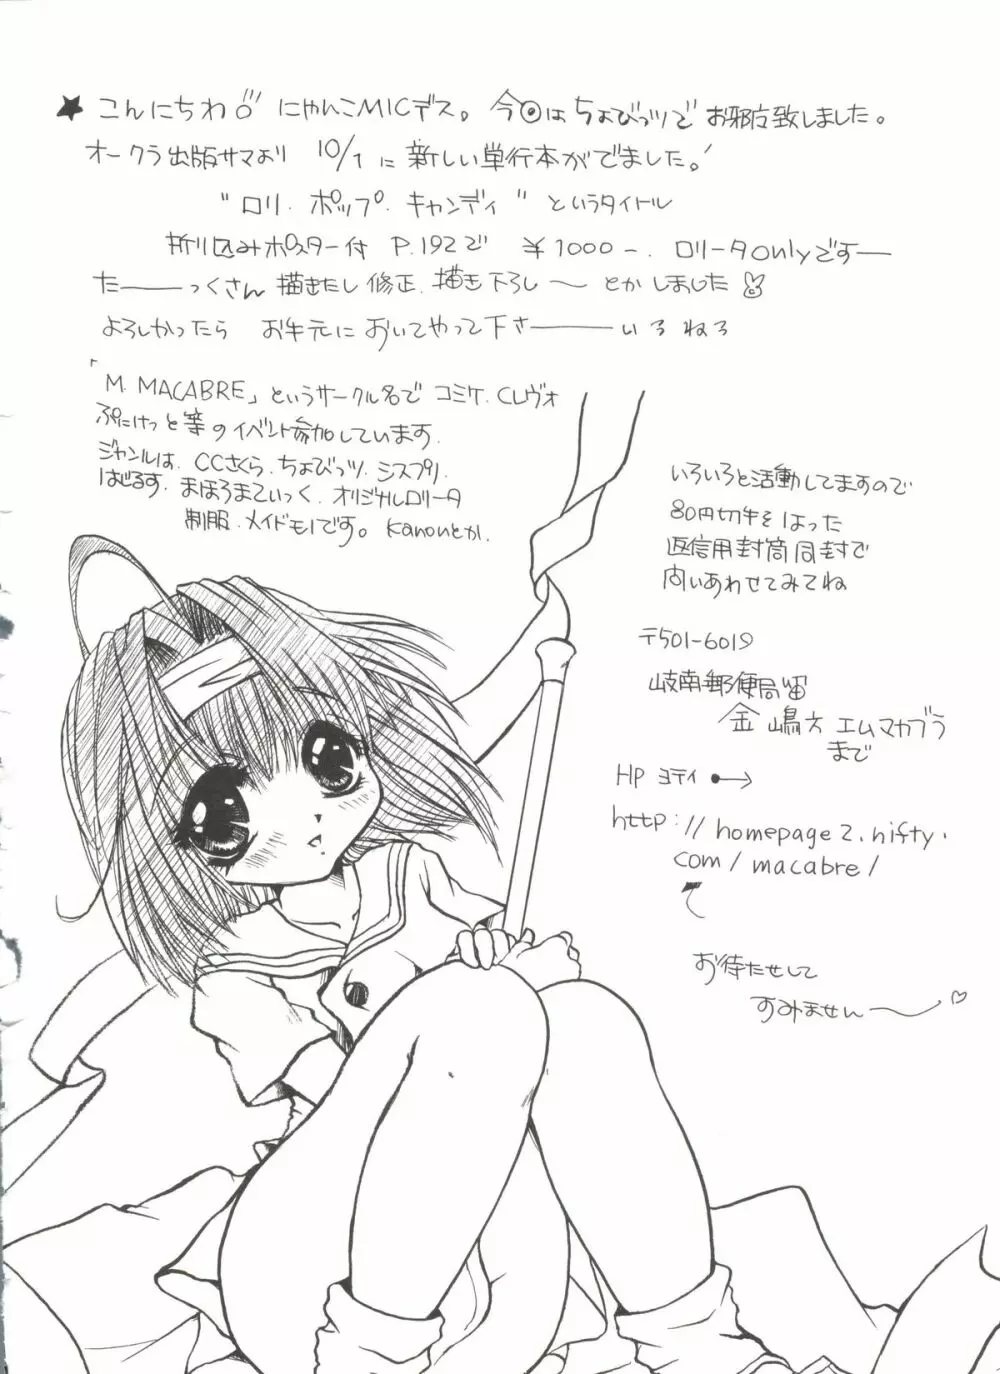 ★ こんにちわ♂ にゃんこMICデス。今回はちょびっツでお邪广致しました。
オークラ出版サマより 10/1 に 新しい単行本がでました。!
"ロリ. ポップ. キャンディ" というタイトル
折り込みポスター付 P.192で ¥1000-. ロリータonlyですー
たーーっくさん 描きたし 修正. 描き下ろし〜 とか しました
よろしかったら お手元に おいてやって下さーーー いろ ねろ
「M. MACABRE」というサークル名で コミケ. CLヴォ
ぷにけっと等のイベント参加しています.
ジャンルは. CCさくら. ちょびっツ. シスプリ.
はじるす. まほろまてぃっく. オリジナルロリータ
制服. メイドモノです。Kanonとか.
いろいろと活動してますので
80円切手をはった
返信用封筒同封で
問いあわせてみてね
〒501-6019
岐南郵便局留
金嶋方 エムマカブラ
まで
HP ヨテイ ●→
http://homepage2.nifty.
com/macabre/
お待たせして
すみません〜♡